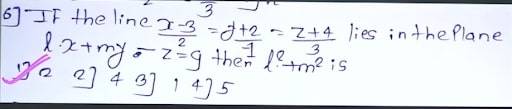 3
6] IF the line x-3/2 = y+2/-1 = z+4/3 lies in the Plane
l x+my - z = 9 then l²+m² is
1] 2 2] 4 3] 1 4] 5